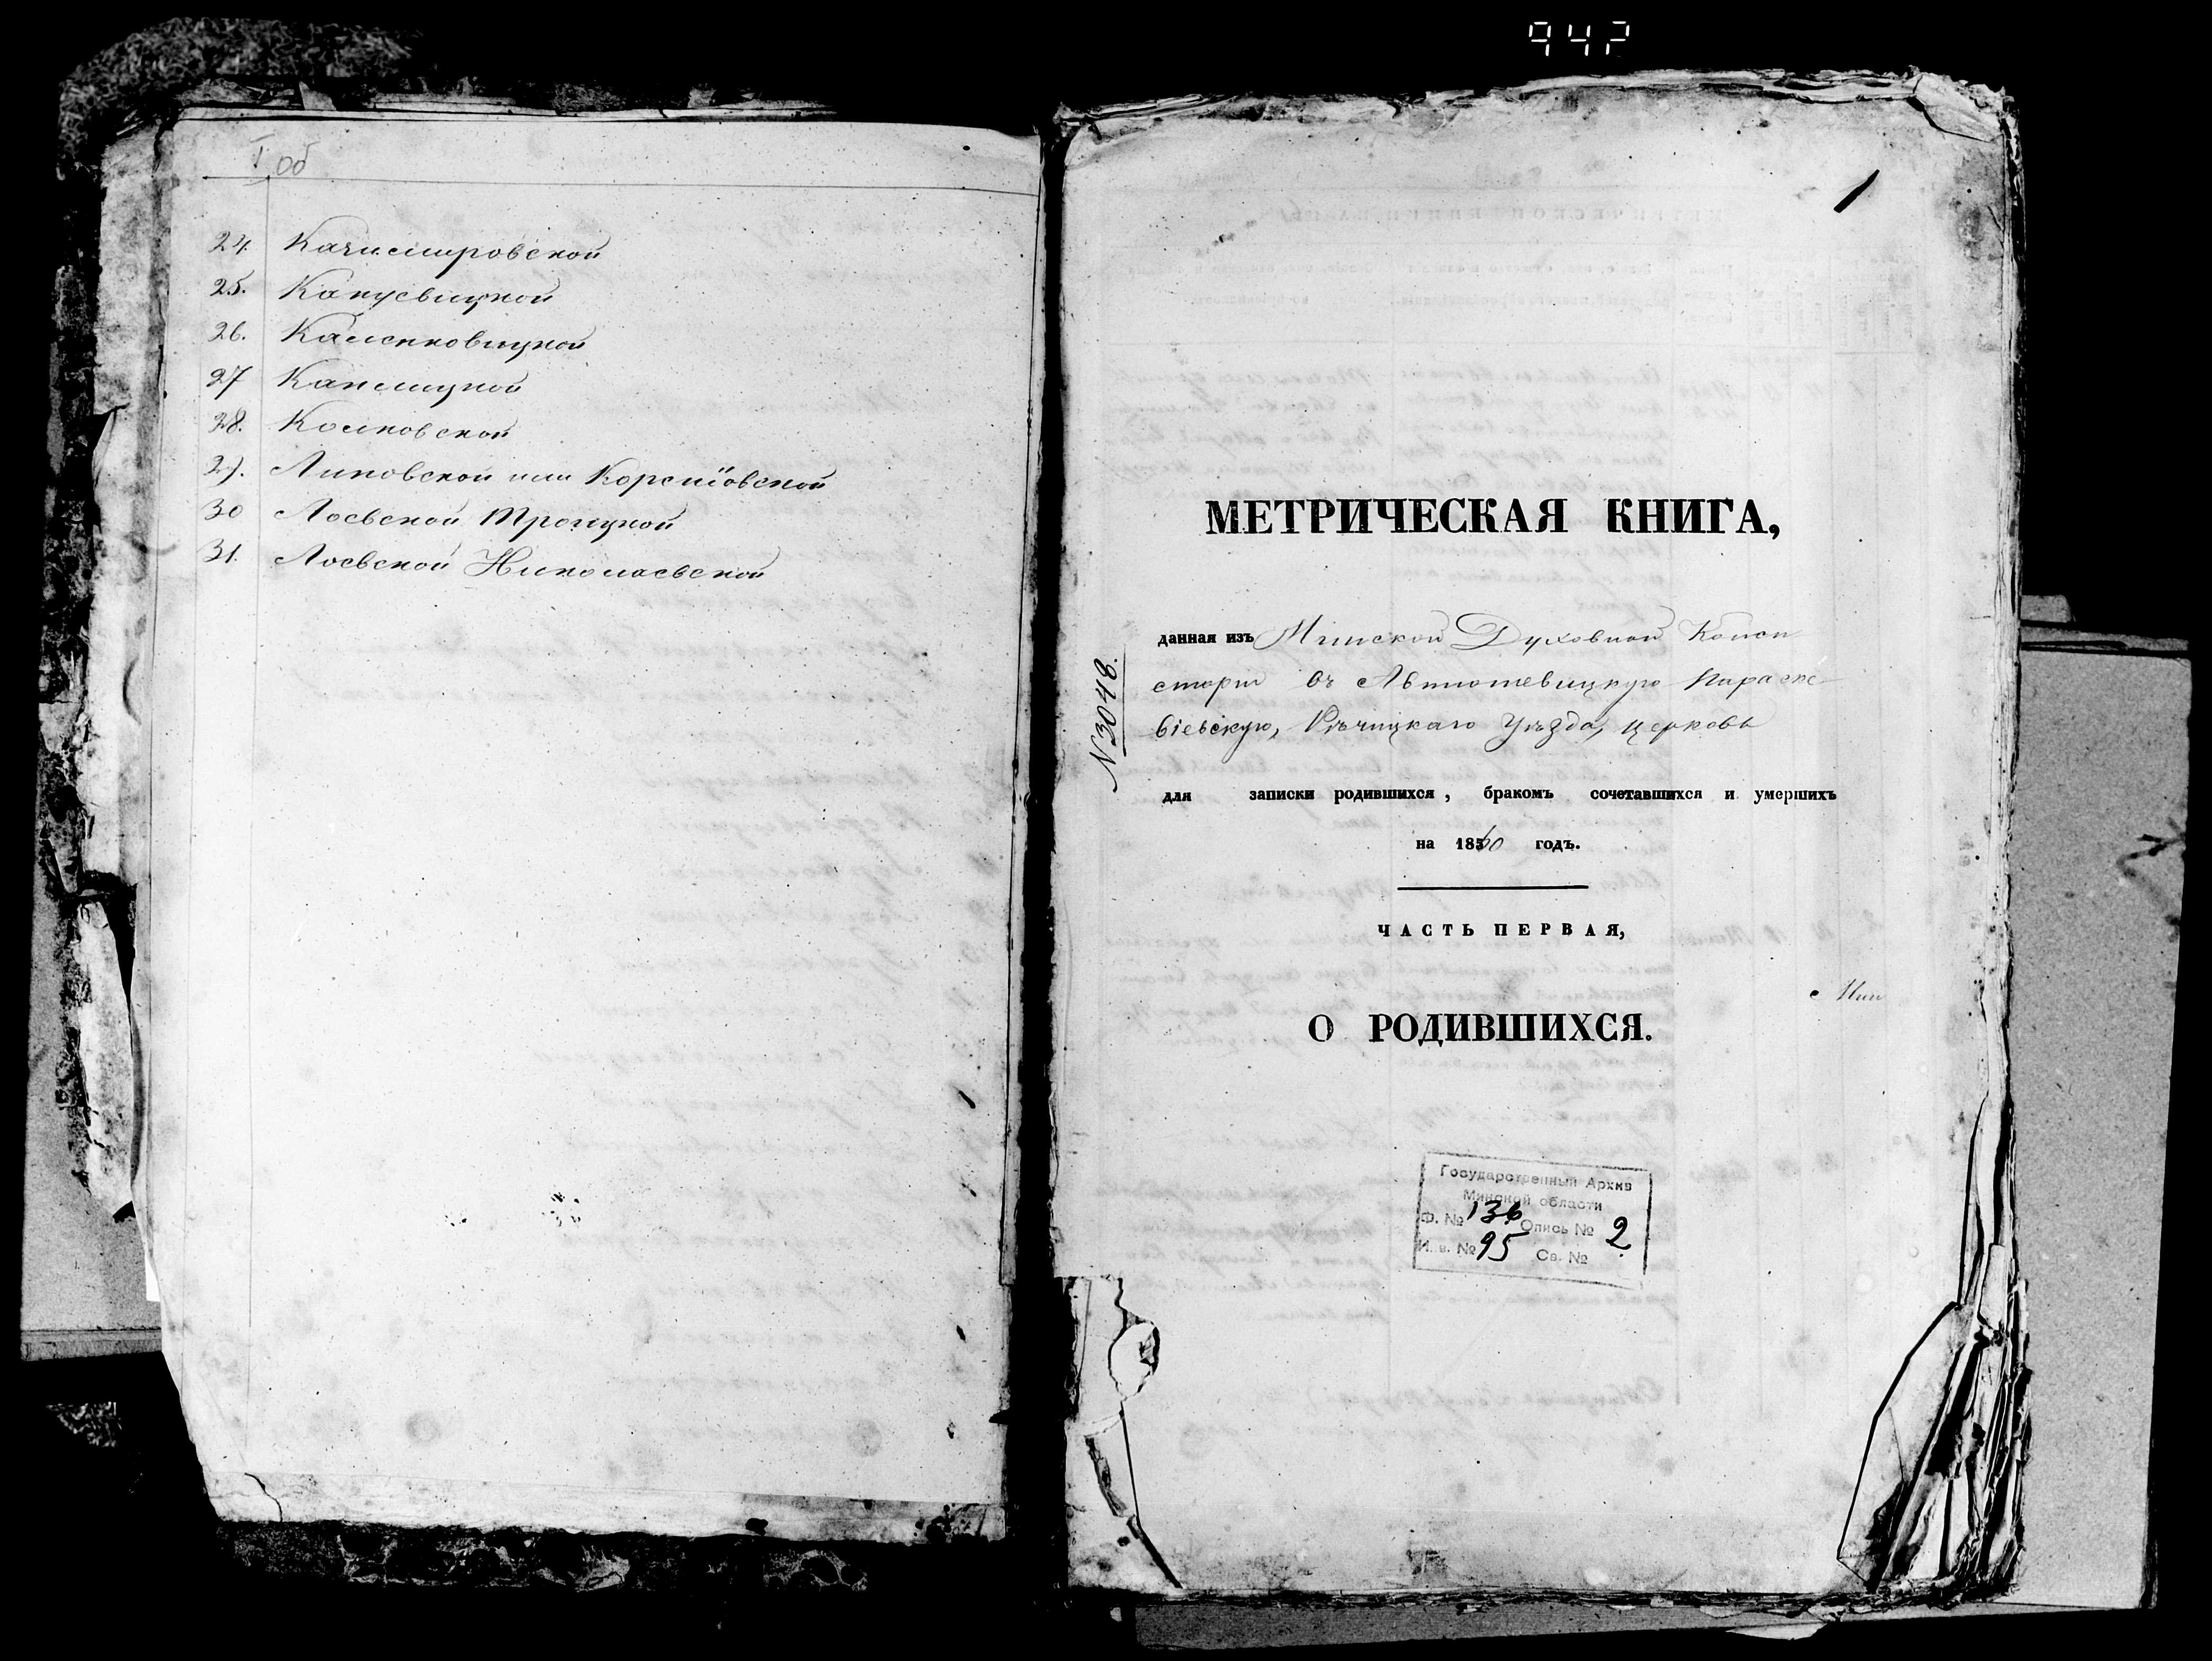 942
I об
24. Казимировской
25. Капусвицкой
26. Каленковицкой
27 Капличкой
28. Колковской
29. Липовской или Коренёвской
30 Лоевской Троицкой
31. Лоевской Николаевской
1
МЕТРИЧЕСКАЯ КНИГА,
N 3048.
данная изъ Минской Духовной Конси
сторіи въ Автютевицкую Параске-
віевскую, Рѣчицкаго Уѣзда, церковь
для записки родившихся, бракомъ сочетавшихся и умершихъ
на 1860 годъ.
ЧАСТЬ ПЕРВАЯ,
Мин
О РОДИВШИХСЯ.
Государственный Архив
Минской области
Ф. № 136 Опись № 2
Инв. № 95 Св. №